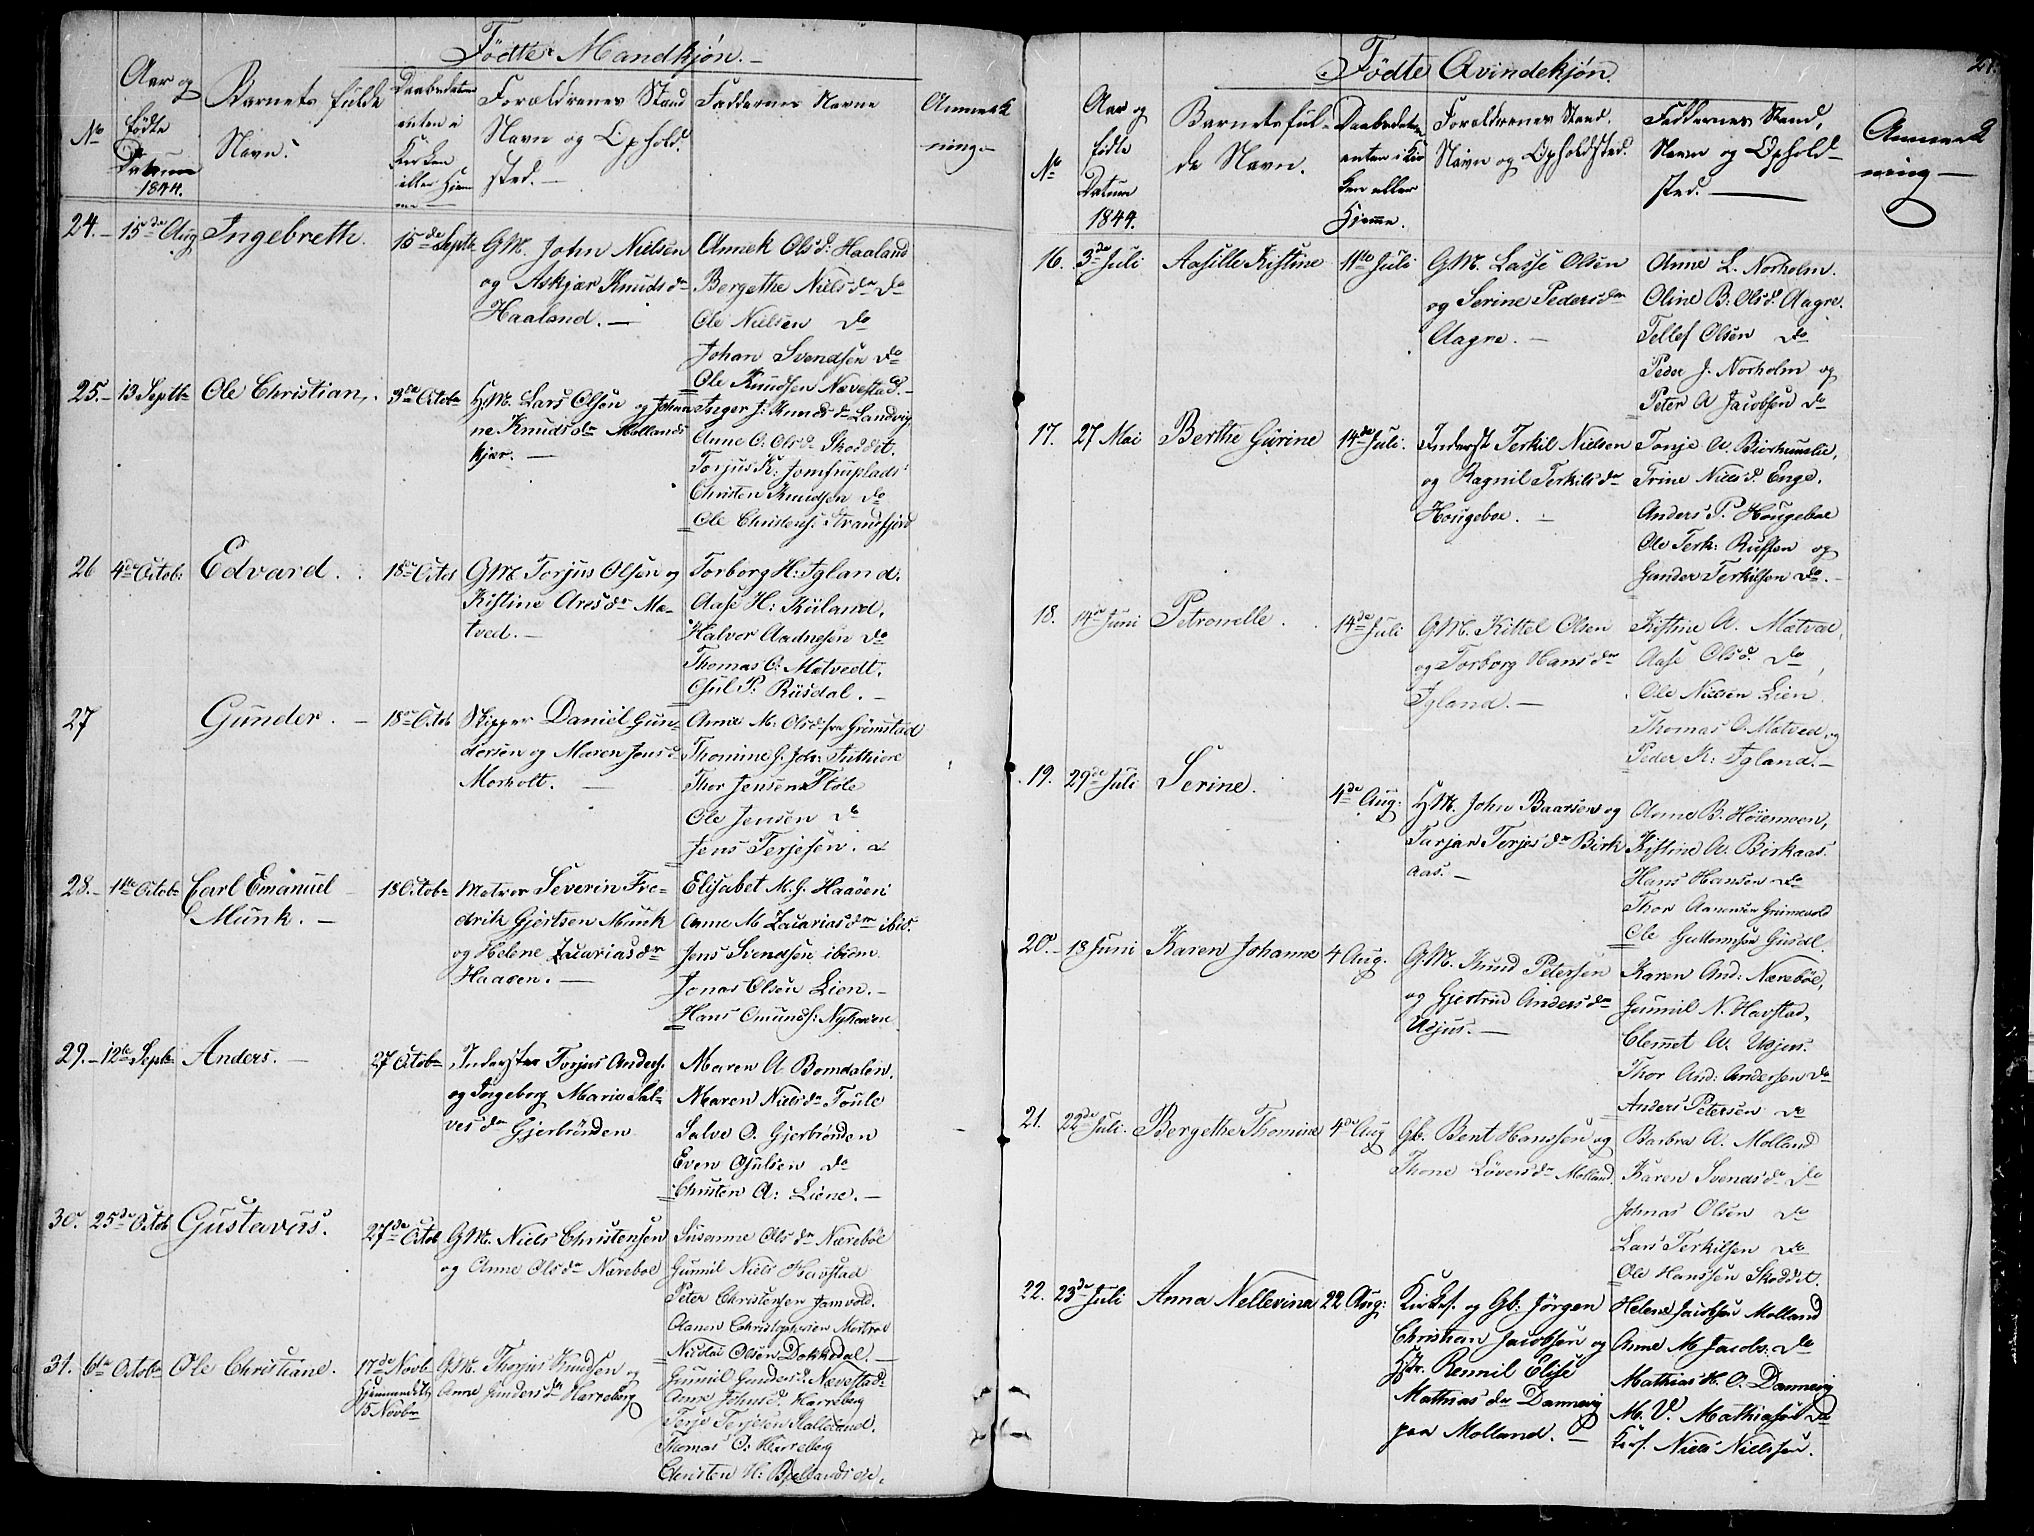 Fødte Mandkjøn. –
No
Aar og
fødte
Datum
1844.
Barnets fulde
Navn.
Daabsdatum
enten i
Kirken
eller Hjem
me –
Forældrenes Stand
Navn og Ophold
sted. –
Faddernes Navne
Anmærk
ning –
24. – 15de Aug Ingebreth. 15de Septb
GM. John Nielsen
og Askjær Knudsdr
Haaland. –
Annek Olsd: Haaland
Bergethe Nielsdr do
Ole Nielsen do
Johan Svendsen do
Ole Knudsen Nævestad. –
25. – 13 Septbr Ole Christian. 3de Octob
HM. Lars Olsen og Johan
ne Knudsdr Mollands
kjær. –
Inger J: Knudsdr Landvig
Anne O. Olsdr Skoddet.
Torjus K: Jomfruplads
Christen Knudsen do
Ole Christens: Strandfjord
26 4de Octob: Edvard. 18de Octob
GM Torjus Olsen og
Kistine Aresdr Mæ-
tved. –
Torborg H: Igland.
Aase H: Kiiland,
Halvor Aadnesen do
Thomas O: Matvedt.
Osul P. Riisdal. –
27 Gunder. – 18de Octob
Skipper Daniel Gun-
dersen og Maren Jensd
Morholt. –
Anne M. Olsd fra Grimstad
Thomine G. Joh:
Thor Jensen Støle
Ole Jensen do
Jens Terjesen. do
28. – 1ste Octob Carl Emanuel
Munk. –
18 Octob
Matros Severin Fre-
drik Gjertsen Munk
og Helene Zacariasdr
Haaøen. –
Elisabet M. G. Haaøen
Anne M Zacariasdr ibid.
Jens Svendsen ibidm
Jonas Olsen Lien. –
Hans Omunds: Nyhaven
29. – 12te Septb Anders. – 27 Octob
Inderster Torjus Anders.
og Ingeborg Marie Sal-
vesdr Gjerbrønden
Maren A. Bomdalen.
Maren Nielsdr Toule
Salve O. Gjerbrønden
Even Osulsen do
Christen A: Liene. –
30. 25de Octob Gustavus. 27de Octob
GM. Niels Christensen
og Anne Olsdr Næreböe
Susanne Olsdr Næreböe
Gunnil Niels Havstad
Peter Christensen Jomvold.
Olanen Christophersen Mortvet
Nicolai Olsen Dokkedal. –
31. 6te Octob Ole Christiane. 17de Novb
Hjemmedøbt
15 Novb
GM. Thorjus Knudsen og
Anne Gundersdr Harreberg
Gunnil Gundersd: Nævestad
Anne Johnsd. Harreberg
Terje Terjesen Kallesund.
Thomas O: Harreberg
Christen H: Bjellandseie.
27.
Fødte Qvindekjøn.
No
Aar og
fødte
Datum
1844.
Barnets ful-
de Navn.
Daabsdatum
enten i Kir
ken eller
Hjemme.
Forældrenes Stand.
Navn og Opholdsted.
Faddernes Stand,
Navn og Ophold-
sted. –
Anmærk
ning –
16. 3de Juli Aasille Kistine 11te Juli
GM. Lasse Olsen
og Serine Pedersdr
Aagre. –
Anne L. Norholm.
Oline B. Olsd. Aagre.
Tellef Olsen do
Peder J. Norholm og
Peter A Jacobsen do
17. 27 Mai Berthe Gurine 14de Juli.
Inderst Terkil Nielsen
og Ragnil Terkilsdr
Hougeboe. –
Tonje A. Biorkumlie,
Trine Nielsd. Enge.
Anders P. Hougeboe
Ole Terk: Ruffen og
Gunder Terkilsen do. –
18. 14de Juni Petronelle. 14de Juli
GM. Kittel Olsen
og Torborg Hansdr
Igland. –
Kistine A. Matved,
Aase Olsd. do,
Ole Nielsen Lien.
Thomas O. Matved, og
Peder K: Igland. –
19. 29de Juli Serine. 4de Aug:
HM. John Baarsen og
Tarjær Terjesdr Birk
aas. –
Anne B. Høiemoen,
Kistine A. Birkaas.
Hans Hansen do
Thor Aanensen Grimevold
Ole Guttormsen Gusdl.
20 – 13 Juni Karen Johanne 4 Aug.
G.M. Knud Petersen
og Gjertrud Andersdr
Udjus. –
Karen And: Nærebøe,
Gunnil N. Havstad,
Clemet A. Udjus.
Thor And: Andersen do
Anders Petersen do
21. 22de Juli. Bergethe Thomine 4de Aug
Gb. Bent Hanssen og
Thone Løversdr Molland
Barbra A. Molland
Karen Svendsdr do
Johnas Olsen do
Lars Terkilsen do
Ole Hanssen Skoddet.
22. 23de Juli Anna Nellevina 22 Aug:
Kirkes. og Gb: Jörgen
Christian Jacobsen og
Hstr. Rennil Elise
Mathiasdr Dannevig
paa Molland. –
Helene Jacobsen Molland
Anne M Jacobs: do
Mathias H. O. Dannevig
M. V. Mathiasen do
Kirks. Niels Nielssen.